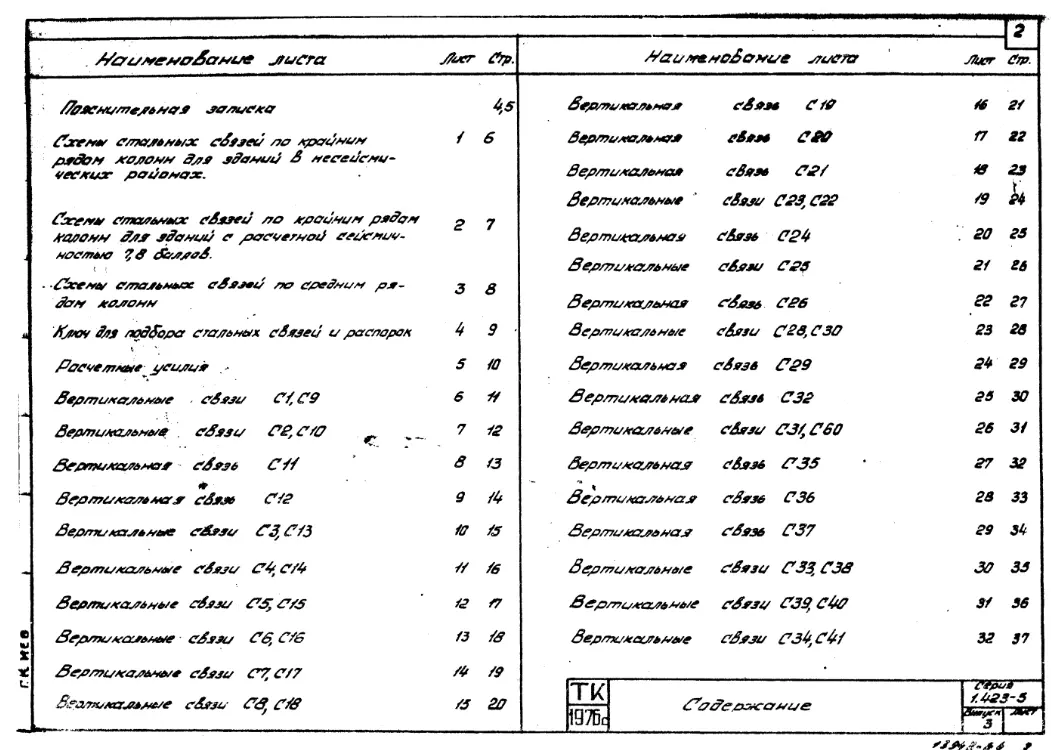 2
Наименование листа Лист Стр.
Пояснительная записка 4,5
Схемы стальных связей по крайним 1 6
рядам колонн для зданий в несейсми-
ческих районах.
Схемы стальных связей по крайним рядам
колонн для зданий с расчетной сейсмич- 2 7
ностью 7,8 баллов.
Схемы стальных связей по средним ря- 3 8
дам колонн
Ключ для подбора стальных связей и распорок 4 9
Расчетные усилия 5 10
Вертикальные связи С1, С9 6 11
Вертикальные связи С2, С10 7 12
Вертикальная связь С11 8 13
Вертикальная связь С12 9 14
Вертикальные связи С3, С13 10 15
Вертикальные связи С4, С14 11 16
Вертикальные связи С5, С15 12 17
Вертикальные связи С6, С16 13 18
Вертикальные связи С7, С17 14 19
Вертикальные связи С8, С18 15 20
Наименование листа Лист Стр.
Вертикальная связь С19 16 21
Вертикальная связь С20 17 22
Вертикальная связь С21 18 23
Вертикальные связи С23, С22 19 24
Вертикальная связь С24 20 25
Вертикальные связи С25 21 26
Вертикальная связь С26 22 27
Вертикальные связи С28, С30 23 28
Вертикальная связь С29 24 29
Вертикальная связь С32 25 30
Вертикальные связи С31, С60 26 31
Вертикальная связь С35 27 32
Вертикальная связь С36 28 33
Вертикальная связь С37 29 34
Вертикальные связи С33, С38 30 35
Вертикальные связи С39, С40 31 36
Вертикальные связи С34, С41 32 37
ТК
1976г
Содержание
Серия
1.423-5
Выпуск Лист
3
Г.К. ИЕВ